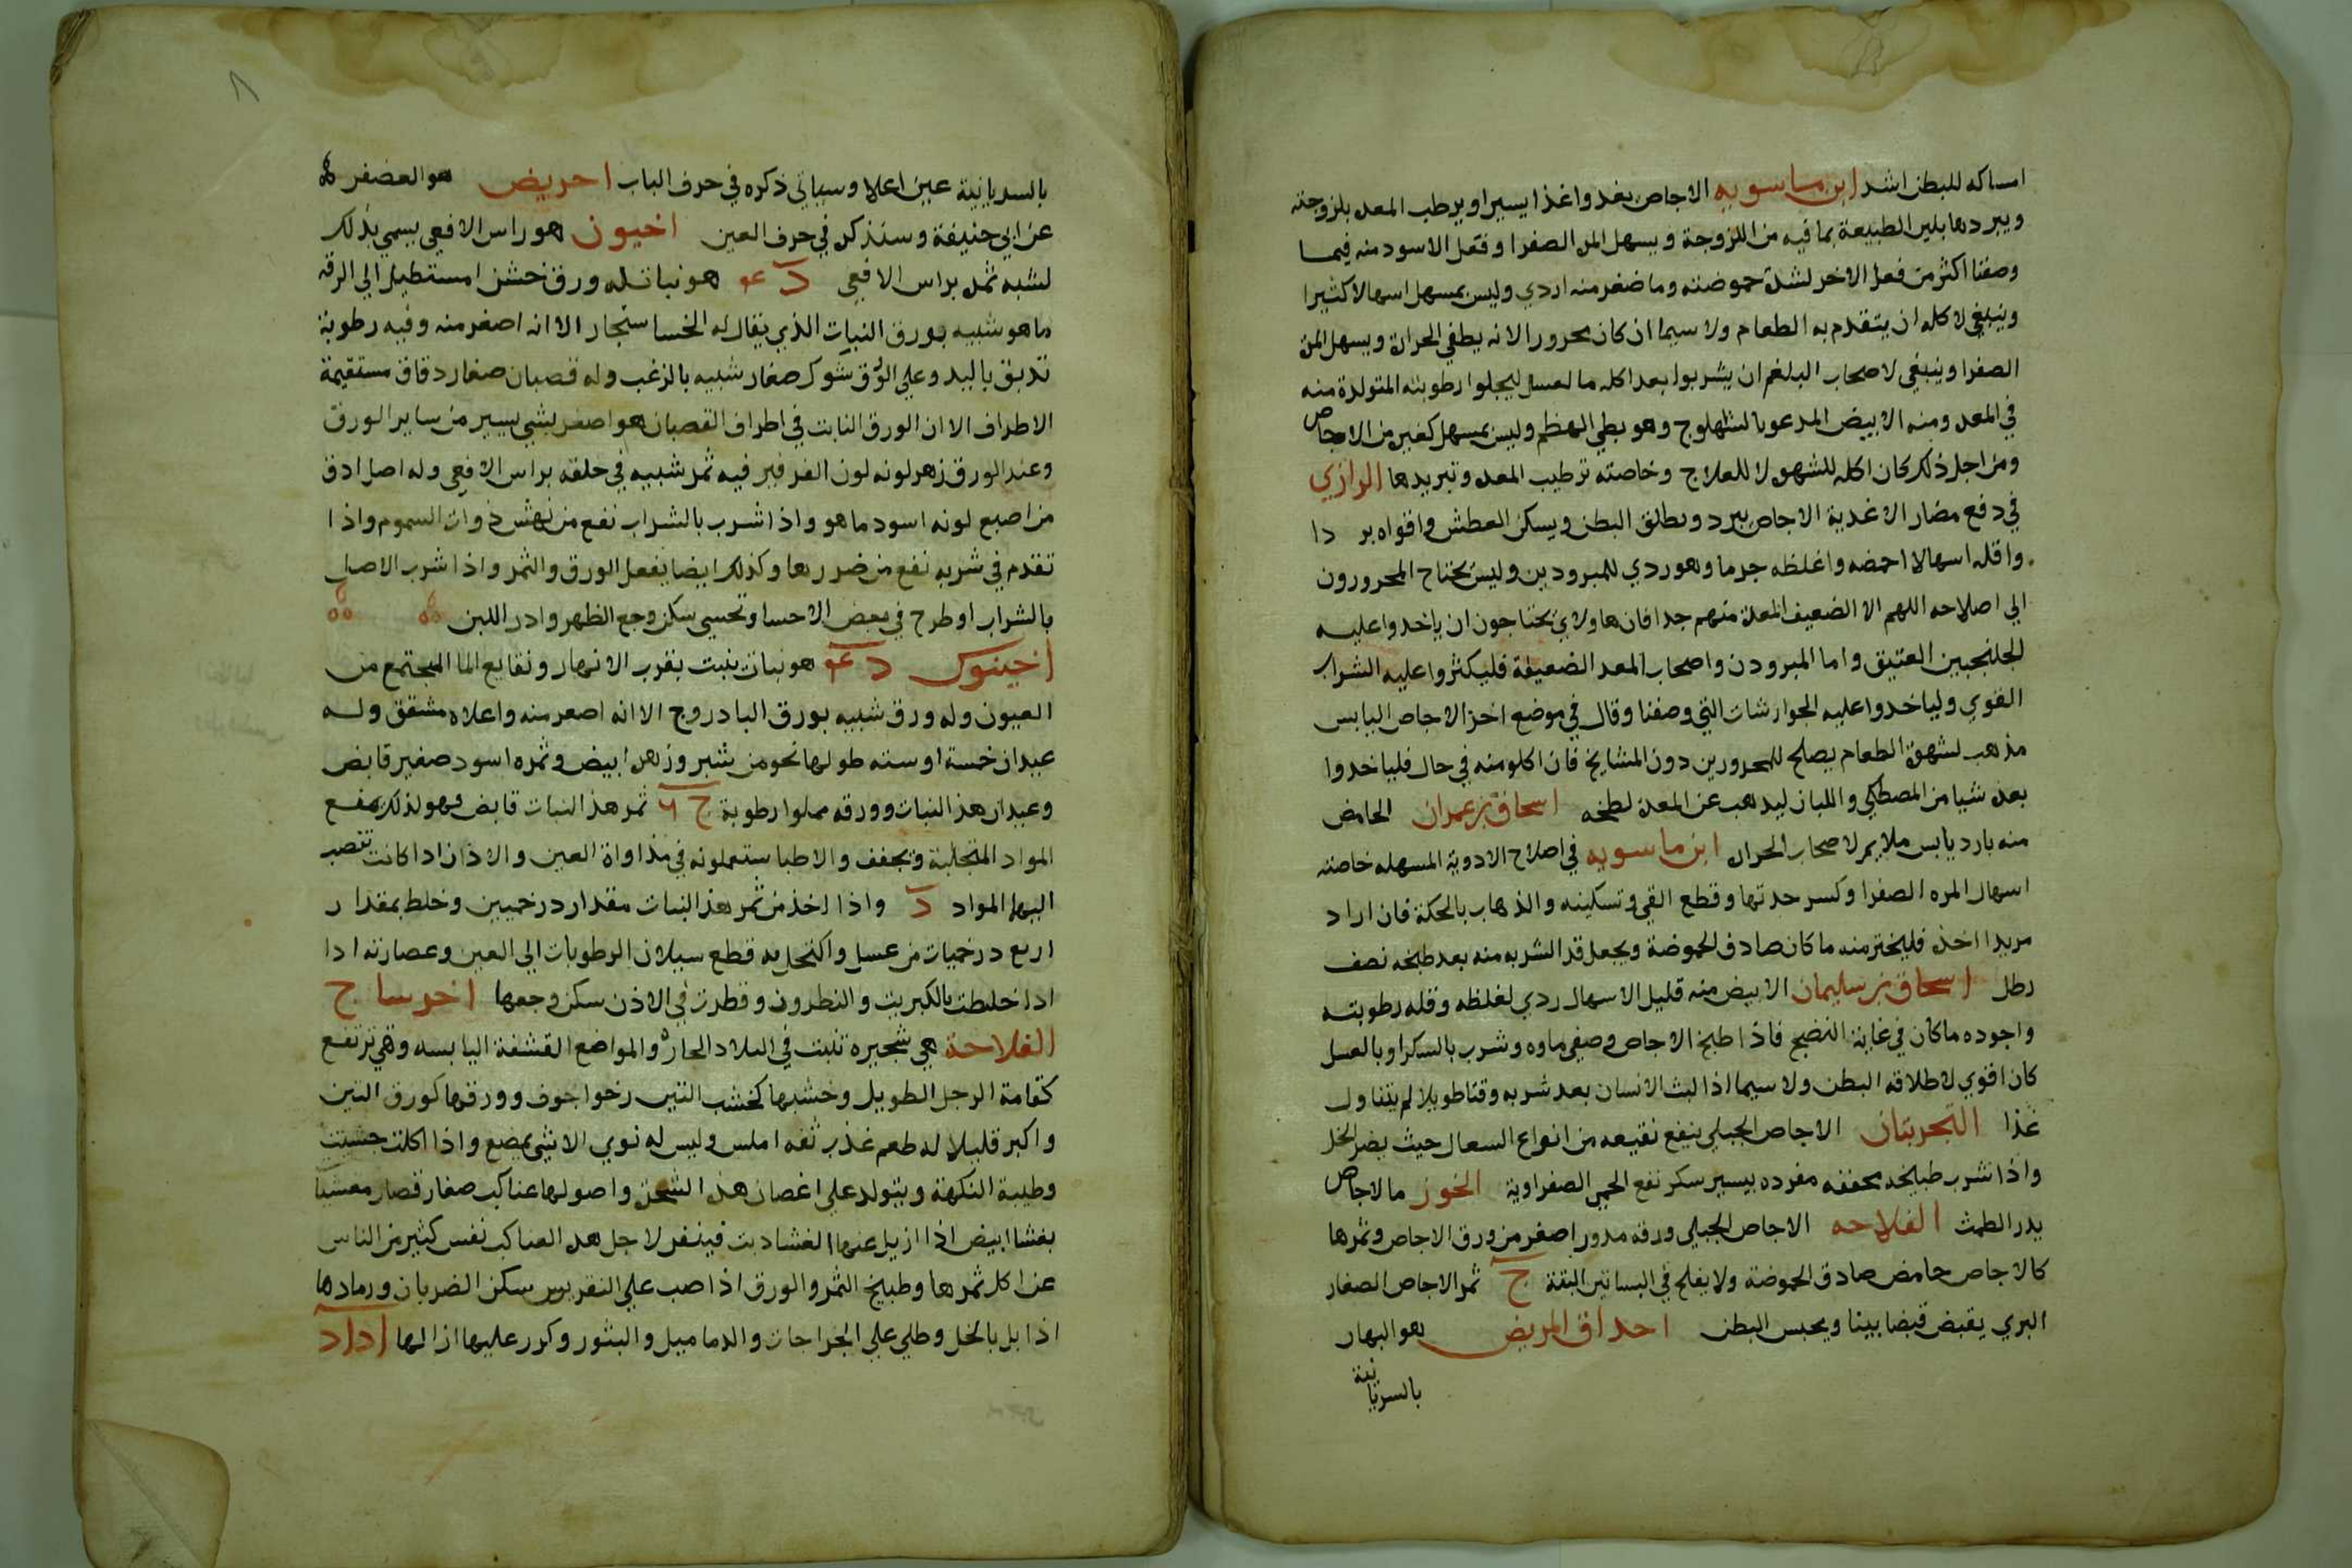 امساكه للبطن اشد ابن ماسويه الاجاص يغدوا غذا يسيرا ويرطب المعده بلزوجته
ويبردها يلين الطبيعة بما فيه من اللزوجة ويسهل المره الصفرا وفعل الاسود منه فيما
وصفنا اكثر من فعل الاخر لشدة حموضته وما صغر منه اردي وليس بمسهل اسهالا كثيرا
وينبغي لاكله ان يتقدم به الطعام ولا سيما ان كان محرورا لانه يطفي الحرارة ويسهل المرة
الصفرا وينبغي لاصحاب البلغم ان يشربوا بعد اكله ما لعسل ليجلوا رطوبته المتولدة منه
في المعده ومنه الابيض المدعو بالشهلوج وهو بطي الهظم وليس بمسهل كغيره من الاجاص
ومن اجل ذلك كان اكله للشهوة لا للعلاج وخاصته ترطيب المعده وتبريدها الرازي
في دفع مضار الاغدية الاجاص يبرد ويطلق البطن ويسكن العطش واقواه بر دا
واقله اسهالا احمضه واغلظه جرما وهو ردي للمبرودين وليس يحتاج المحرورون
الي اصلاحه اللهم الا الضعيف المعدة منهم جدا فان هاولاي يحتاجون ان ياخدوا عليه
الجلنجبين العتيق واما المبرودن واصحاب المعد الضعيفة فليكثروا عليه الشراب
القوي ولياخدوا عليه الجوارشات التي وصفنا وقال في موضع اخر الاجاص اليابس
مذهب لشهوة الطعام يصلح للمحرورين دون المشايخ فان اكلو منه في حال فلياخدوا
بعده شيا من المصطكي واللبان ليدهب عن المعدة لطخه اسحاق بن عمران الحامض
منه بارد يابس ملايم لاصحاب الحرارة ابن ماسويه في اصلاح الادوية المسهله خاصته
اسهال المره الصفرا وكسر حدتها وقطع القي وتسكينه والذهاب بالحكة فان اراد
مريدا اخذه فليختر منه ما كان صادق الحموضة ويجعل قدر الشربه منه بعد طبخه نصف
رطل اسحاق بن سليمان الابيض منه قليل الاسهال ردي لغلظه وقله رطوبته
واجوده ما كان في غاية النضج فاذا طبخ الاجاص وصفي ماوه وشرب بالسكر او بالعسل
كان اقوي لاطلاقه البطن ولا سيما اذا لبث الانسان بعد شربه وقتا طويلا لم يتناول
غذا التجربتان الاجاص الجبلي ينفع نقيعه من انواع السعال حيث يضر الخل
واذا شرب طبيخه مجففه مفرده بيسير سكر نفع الحمي الصفراوية الخوز ما لاجاص
يدر الطمث الفلاحه الاجاص الجبلي ورقه مدور اصغر من ورق الاجاص وثمرها
كالاجاص حامض صادق الحموضة ولا يفلح في البساتين البتة ج ثمر الاجاص الصغار
البري يقبض قبضا بينا ويحبس البطن احداق المريض هو البهار
بالسريانية
٨
بالسريانية عين اعلا وسياتي ذكره في حرف الباب احريض هو العصفر
عن ابي حنيفة وسنذكره في حرف العين اخيون هو راس الافعي يسمي بذلك
لشبه ثمره براس الافعي د عه هو نبات له ورق خشن امستطيل الي الرقه
ما هو شبيه بورق النبات الذي يقال له الخسا سنجار الا انه اصغر منه وفيه رطوبة
تدبق باليد وعلي الورق شوك صغار شبيه بالزغب وله قصبان صغار دقاق مستقيمة
الاطراف الا ان الورق النابت في اطراف القصبان هو اصغر بشي يسير من ساير الورق
وعند الورق زهر لونه لون الفرفير فيه ثمر شبيه في خلقه براس الافعي وله اصل ادق
من اصبع لونه اسود ما هو واذا شرب بالشراب نفع من نهش ذوات السموم واذا
تقدم في شربه نفع من ضررها وكذلك ايضا يفعل الورق والثمر واذا شرب الاصل
بالشراب او طرح في بعض الاحسا وتحسي سكن وجع الظهر وادر اللبن
اخينوك د عه هو نبات ينبت بقرب الانهار ونقايع الما المجتمع من
العيون وله ورق شبيه بورق البادروج الا انه اصغر منه واعلاه مشقق وله
عيدان خمسة او سته طولها نحو من شبر وزهر ابيض وثمره اسود صغير قابض
وعيدان هذ النبات وورقه مملوا رطوبة ج ٦ ثمر هذ النبات قابض فهو لذلك يمنع
المواد المتجلبة ويجفف والاطبا يستعملونه في مذاواة العين والاذان اذا كانت تنصب
اليها المواد د واذا اخذ من ثمر هذ النبات مقدار درخميين وخلط بمقدار
اربع درخميات من عسل واكتحل به قطع سيلان الرطوبات الي العين وعصارته ادا
ادا خلطت بالكبريت والنطرون وقطرت في الاذن سكن وجعها اخرساج
الفلاحة هي شجيره تنبت في البلاد الحاره والمواضع القشفة اليابسه وهي ترتفع
كقامة الرجل الطويل وخشبها كخشب التين رخوا جوف وورقها كورق التين
واكبر قليلا له طعم عذب تفه املس وليس له نوي الا شي يمضغ واذا اكلت حشت
وطيبة النكهة ويتولد علي اغصان هذ الشجرة واصولها عناكب صغار قصار مغشيا
بغشا ابيض اذا ازيل عنها الغشا دبت فينفر لاجل هذ العناكب نفس كثير من الناس
عن اكل ثمرها وطبيخ الثمر والورق اذا صب علي النقريس سكن الضربان ورمادها
اذا بل بالخل وطلي علي الجراحات والدماميل والبثور وكرر عليها ازالها اداد